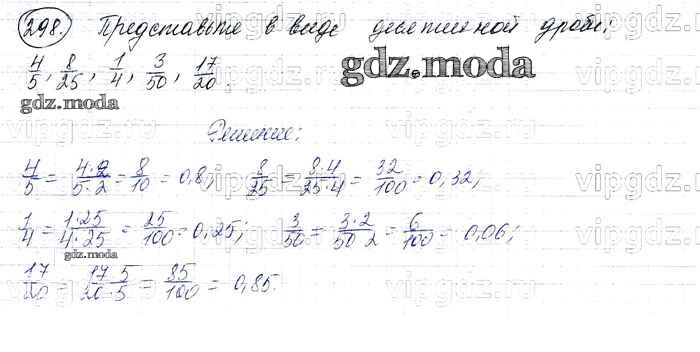 298. Представьте в виде десятичной дроби:
4/5, 8/25, 1/4, 3/50, 17/20.
gdz.moda
gdz.moda
Решение:
4/5 = 4·2/5·2 = 8/10 = 0,8; 8/25 = 8·4/25·4 = 32/100 = 0,32;
1/4 = 1·25/4·25 = 25/100 = 0,25; 3/50 = 3·2/50 2 = 6/100 = 0,06;
gdz.moda
17/20 = 17 5/20·5 = 85/100 = 0,85.
vipgdz.ru